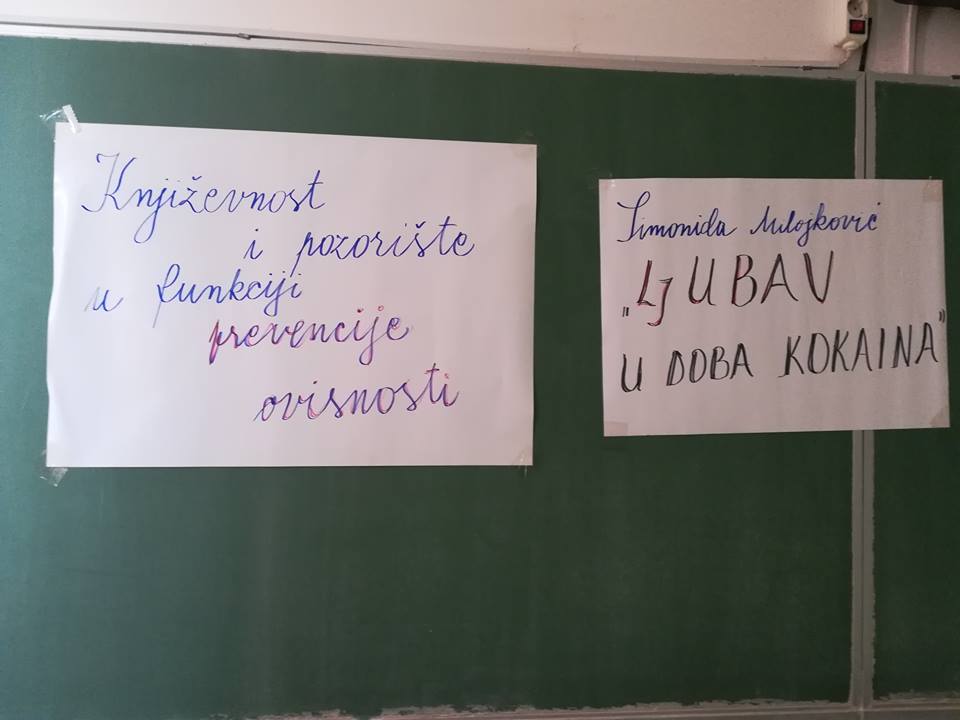 Književnost
i pozorište
u funkciji
prevencije
ovisnosti
Simonida Milojković
„LjUBAV
U DOBA KOKAINA”